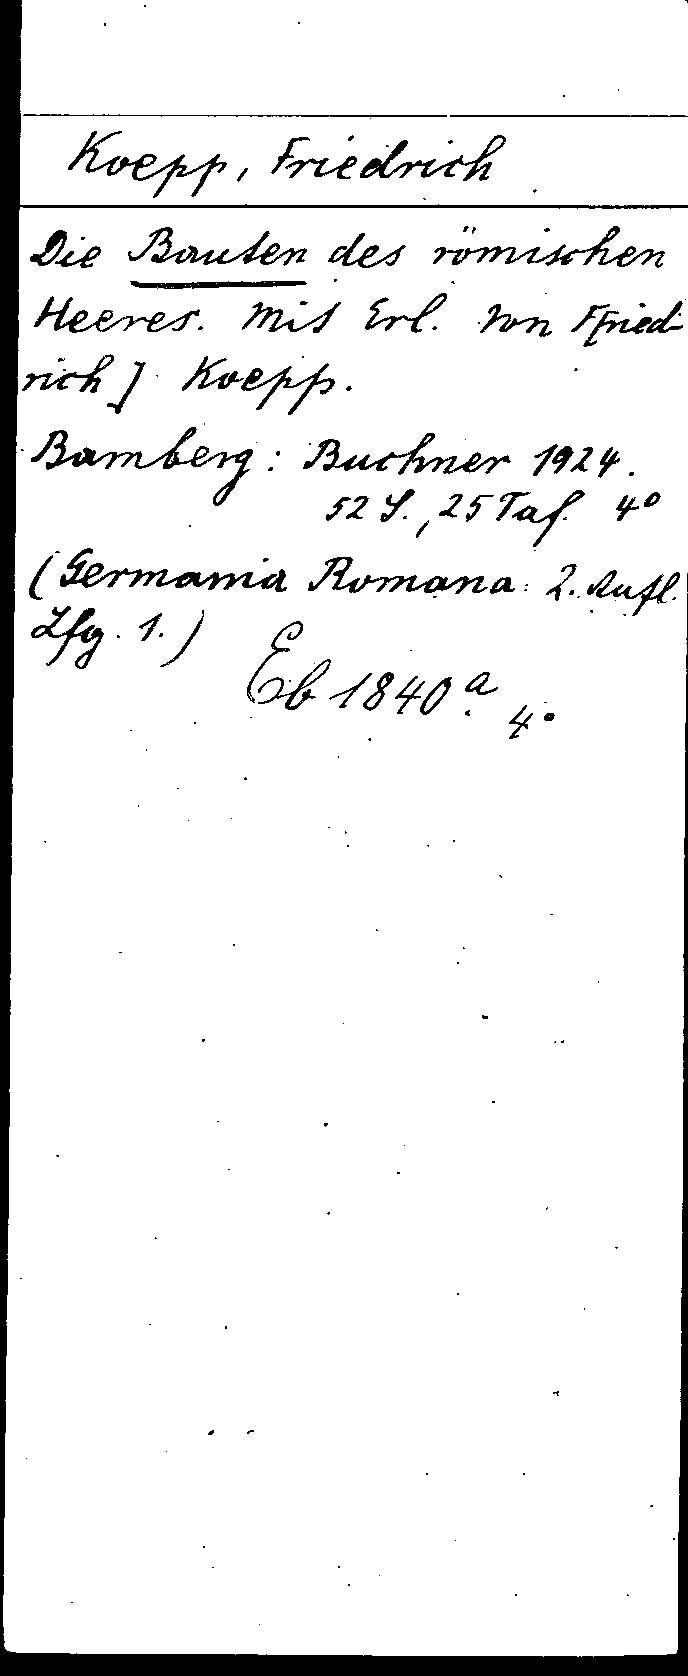 Koepp, Friedrich
Die Bauten des römischen
Heeres. Mit Erl. von F[fried-
rich] Koepp.
Bamberg: Buchner 1924.
52 S., 25 Taf. 4°
(Germania Romana. 2. Aufl.
Lfg. 1.)
Eb 1840 a 4°